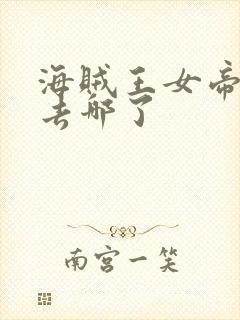 海贼王女帝
去哪了
南宫一笑